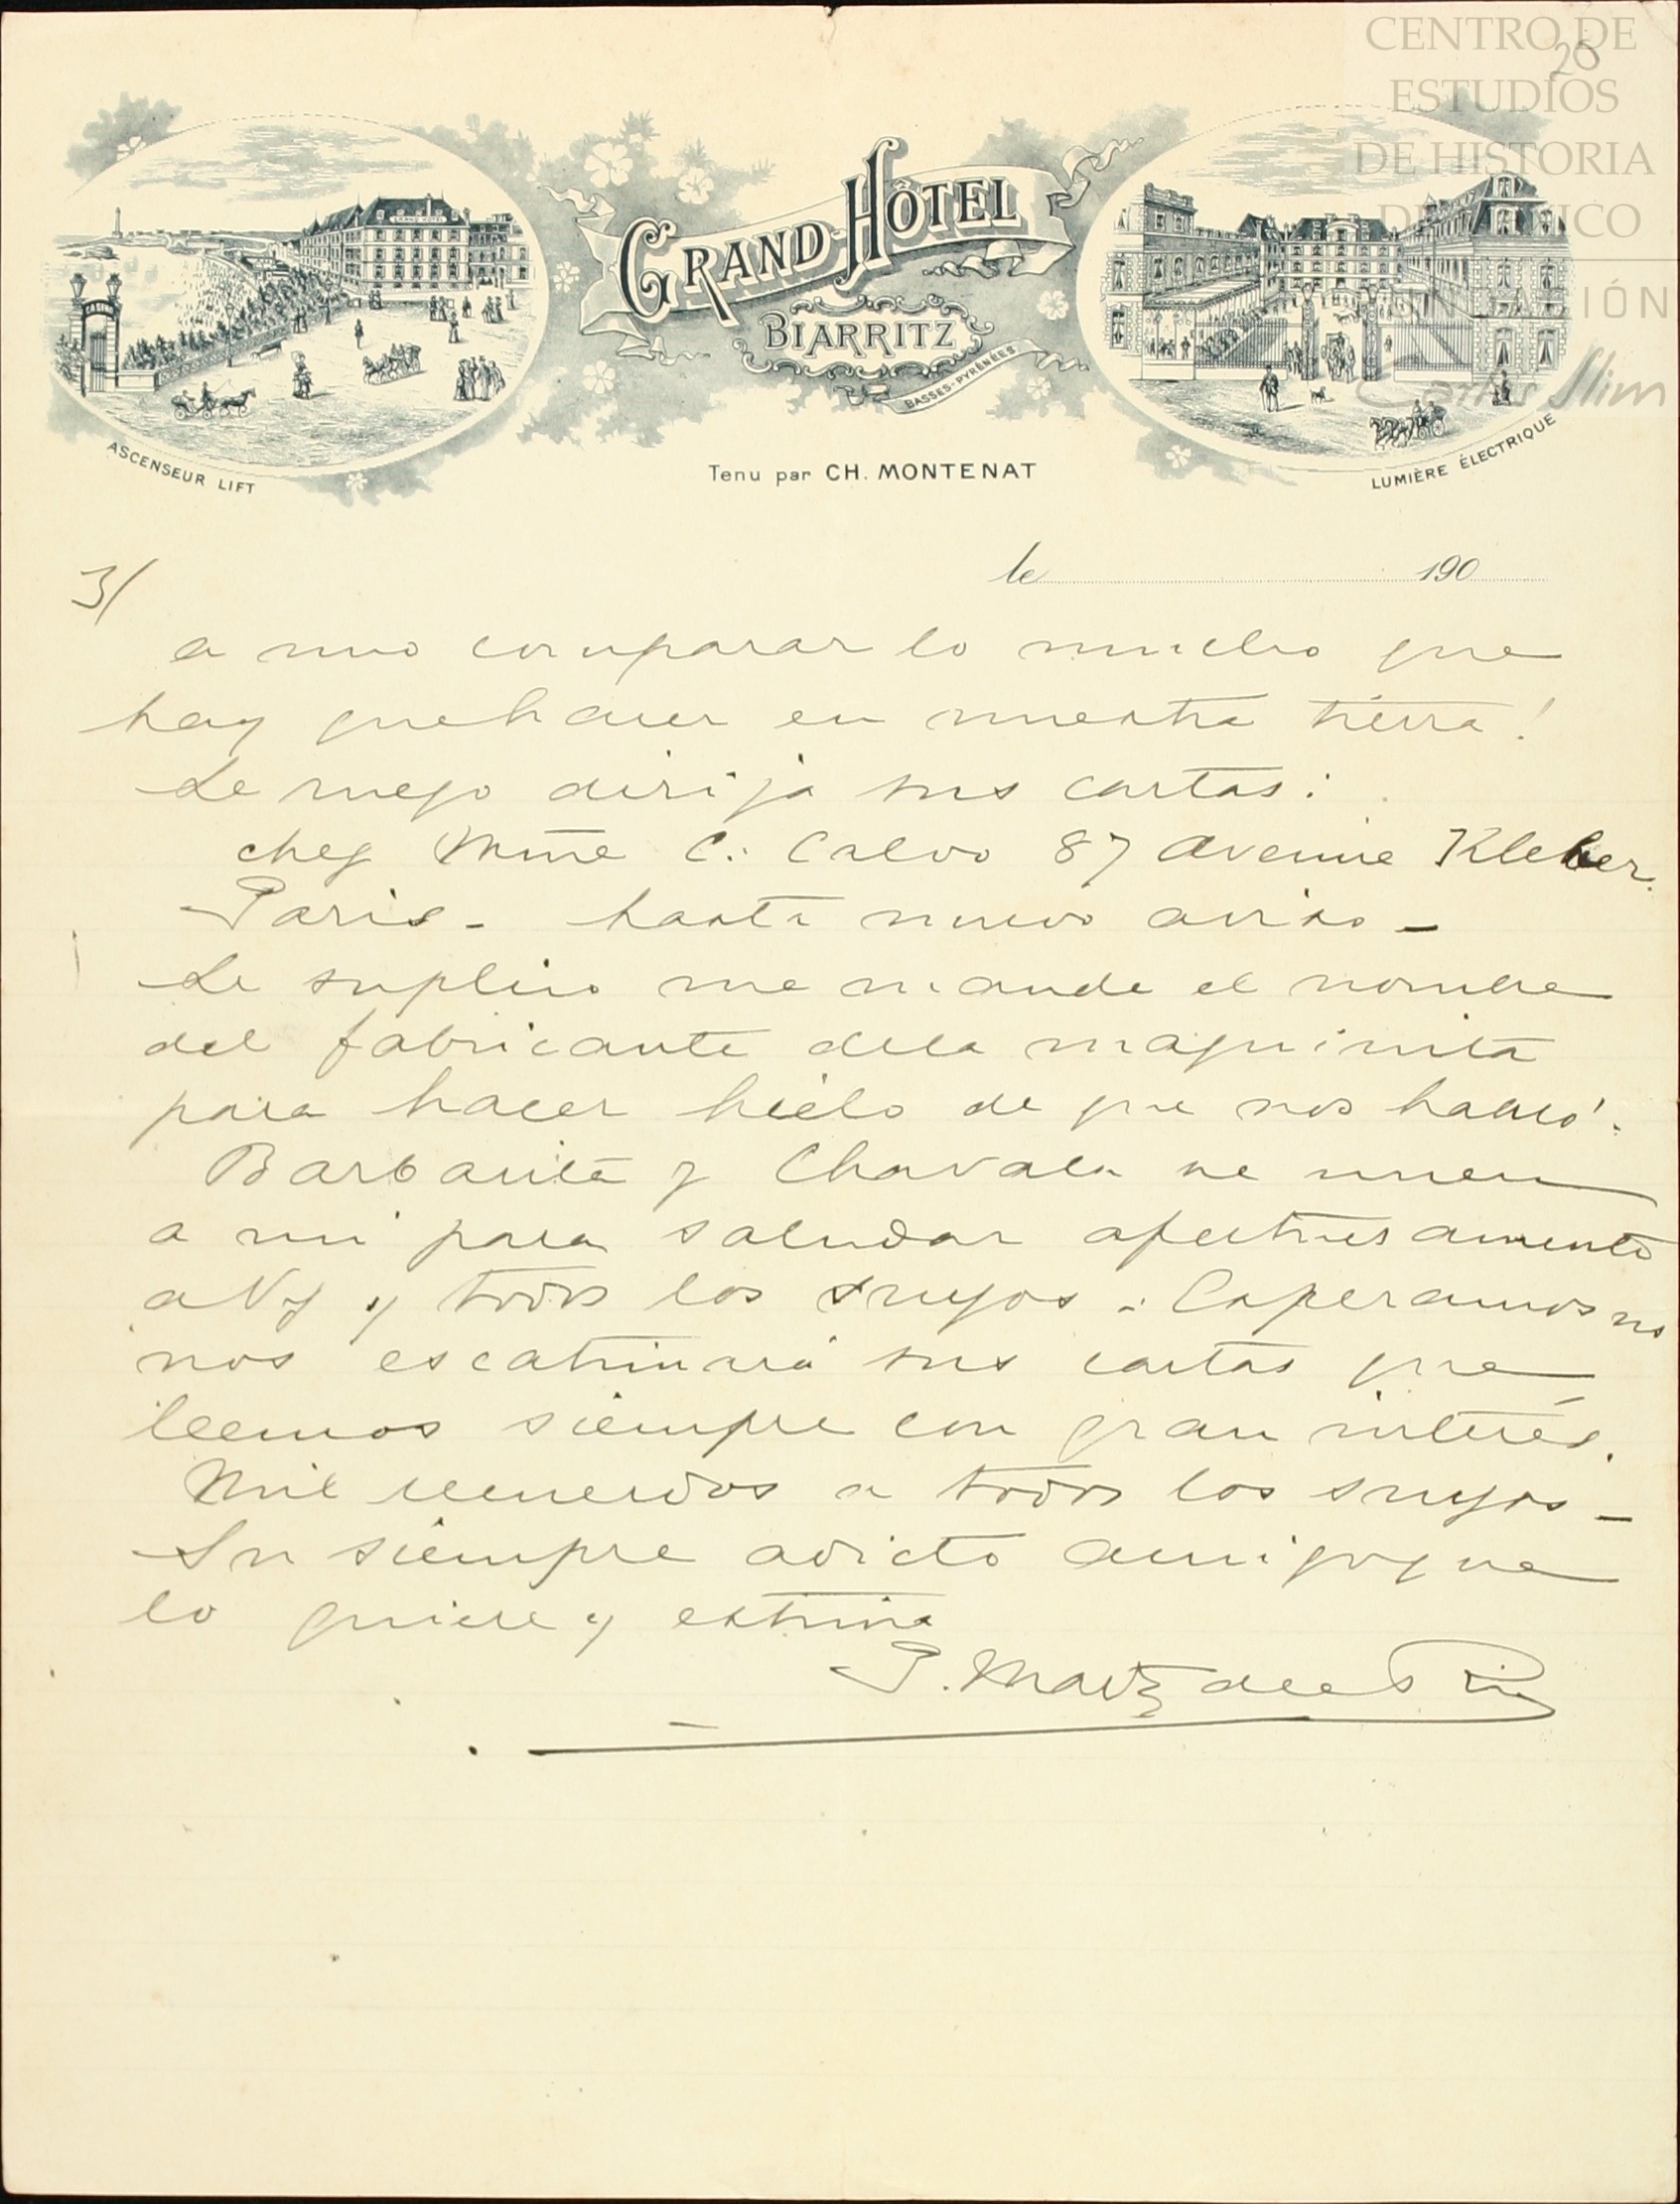 CENTRO DE
ESTUDIOS
DE HISTORIA
DE MÉXICO
FUNDACIÓN
Carlos Slim
26
GRAND-HÔTEL
GRAND HÔTEL
BIARRITZ
BASSES-PYRÉNÉES
ASCENSEUR LIFT
LUMIÈRE ÉLECTRIQUE
Tenu par CH. MONTENAT
le 190
3/
a uno comparar lo mucho que
hay que hacer en nuestra tierra!
Le ruego dirija sus cartas:
chez Mme C. Calvo 87 Avenue Kleber.
Paris - hasta nuevo aviso -
Le suplico me mande el nombre
del fabricante dela maquinita
para hacer hielo de que nos habló.
Barbarita y Chavala se unen
a mi para saludar afectuosamente
a Vd y todos los suyos. Esperamos no
nos escatimará sus cartas que
leemos siempre con gran interés.
Mil recuerdos a todos los suyos -
Su siempre adicto amigo que
lo quiere y estima
P. Martz del Rio